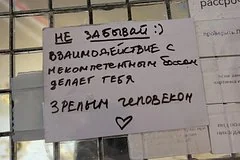 НЕ ЗАБЫВАЙ :)
ВЗАИМОДЕЙСТВИЕ С
НЕКОМПЕТЕНТНЫМ БОССОМ
ДЕЛАЕТ ТЕБЯ
ЗРЕЛЫМ ЧЕЛОВЕКОМ